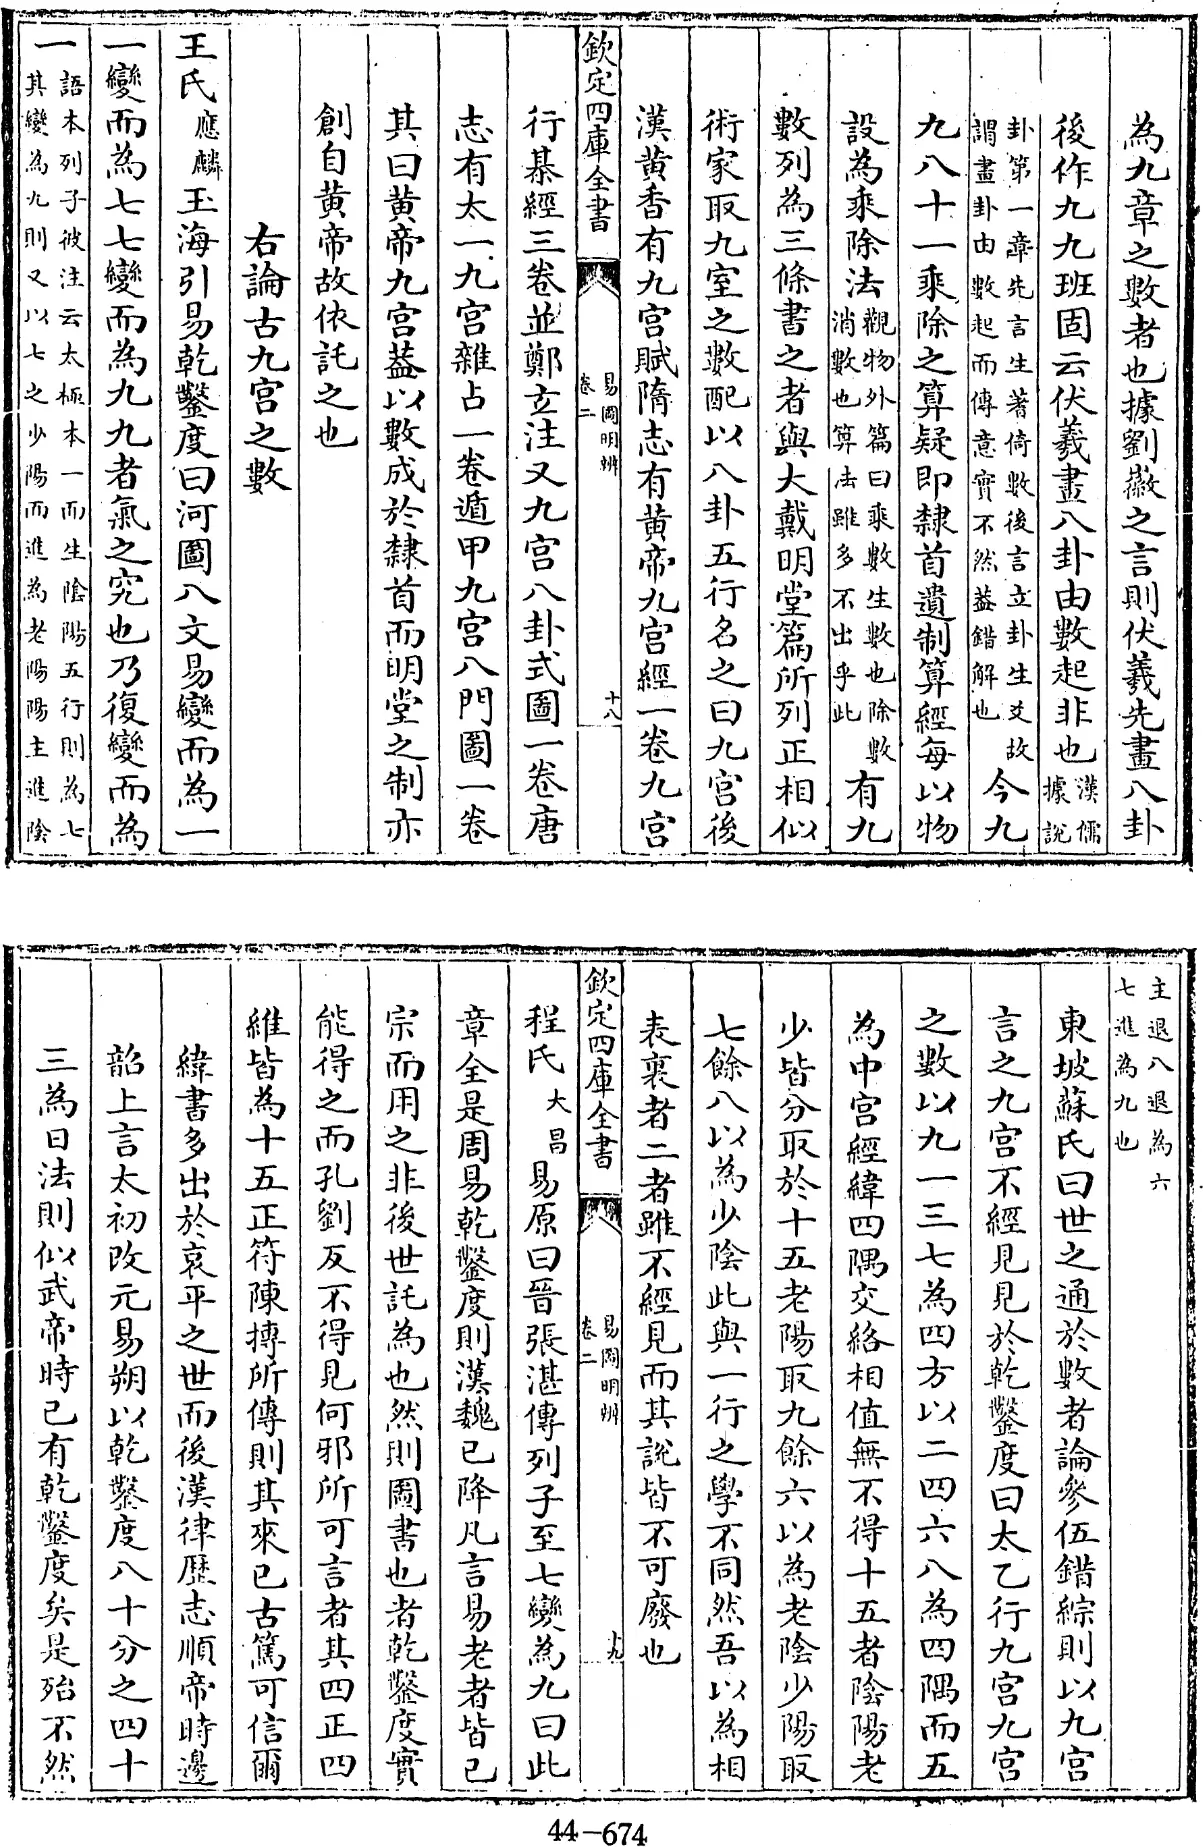 為九章之數者也據劉徽之言則伏羲先畫八卦
後作九九班固云伏羲畫八卦由數起非也漢儒據說
卦第一章先言生蓍倚數後言立卦生爻故謂畫卦由數起而傳意實不然蓋錯解也今九
九八十一乘除之算疑即隸首遺制算經每以物
設為乘除法觀物外篇曰乘數生數也除數消數也算法雖多不出乎此有九
數列為三條書之者與大戴明堂篇所列正相似
術家取九室之數配以八卦五行名之曰九宮後
漢黄香有九宮賦隋志有黄帝九宮經一卷九宮
欽定四庫全書
易圖明辨
卷二
十八
行棊經三卷並鄭𤣥注又九宮八卦式圖一卷唐
志有太一九宮雜占一卷遁甲九宮八門圖一卷
其曰黄帝九宮葢以數成於隸首而明堂之制亦
創自黄帝故依託之也
右論古九宮之數
王氏應麟玉海引易乾鑿度曰河圖八文易變而為一
一變而為七七變而為九九者氣之究也乃復變而為
一語本列子彼注云太極本一而生陰陽五行則為七其變為九則又以七之少陽而進為老陽陽主進陰
主退八退為六七進為九也
東坡蘇氏曰世之通於數者論參伍錯綜則以九宮
言之九宮不經見見於乾鑿度曰太乙行九宮九宮
之數以九一三七為四方以二四六八為四隅而五
為中宮經緯四隅交絡相值無不得十五者陰陽老
少皆分取於十五老陽取九餘六以為老陰少陽取
七餘八以為少陰此與一行之學不同然吾以為相
表裏者二者雖不經見而其說皆不可廢也
欽定四庫全書
易圖明辨
卷二
十九
程氏大昌易原曰晉張湛傳列子至七變為九曰此
章全是周易乾鑿度則漢魏已降凡言易老者皆已
宗而用之非後世託為也然則圖書也者乾鑿度實
能得之而孔劉反不得見何邪所可言者其四正四
維皆為十五正符陳摶所傳則其來已古篤可信爾
緯書多出於哀平之世而後漢律歴志順帝時邊
韶上言太初改元易朔以乾鑿度八十分之四十
三為日法則似武帝時已有乾鑿度矣是殆不然
44-674